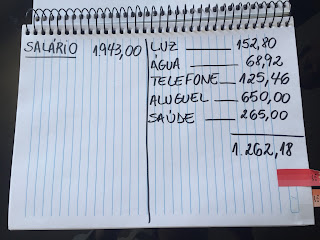 SALÁRIO 1.943,00
LUZ 152,80
ÁGUA 68,92
TELEFONE 125,46
ALUGUEL 650,00
SAÚDE 265,00
1.262,18